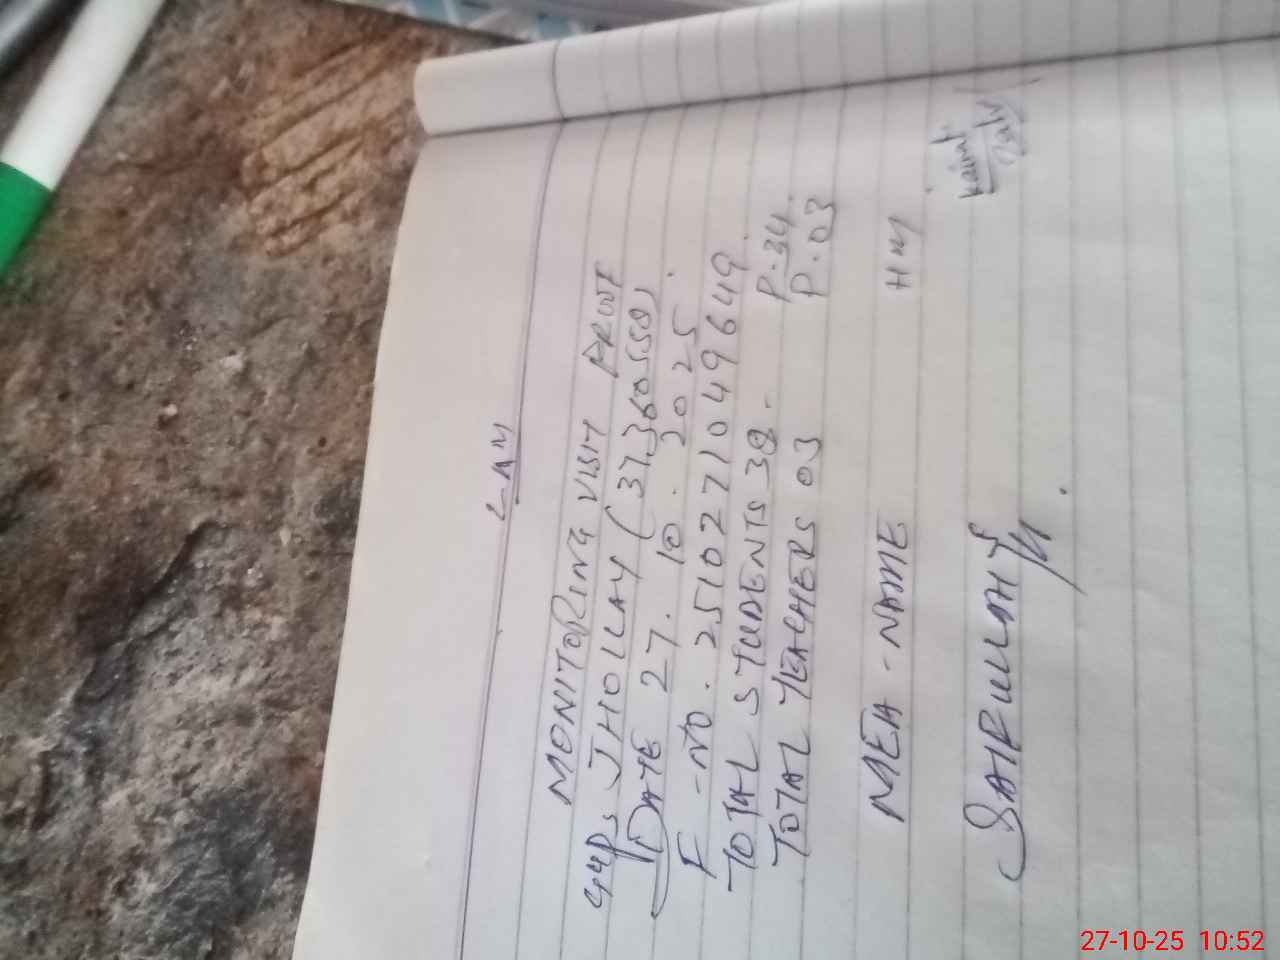 MONITORING VISIT PROOF
GGPS JHOLLAY (37360550)
DATE 27. 10. 2025
F - NO. 2510271049649
TOTAL STUDENTS 38. P.34.
TOTAL TEACHERS 03 P.03
MEA - NAME HM
SAIFULLAH
27-10-25 10:52